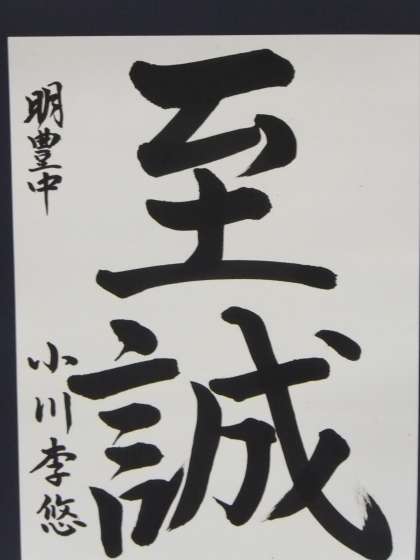 至誠
明豊中
小川李悠